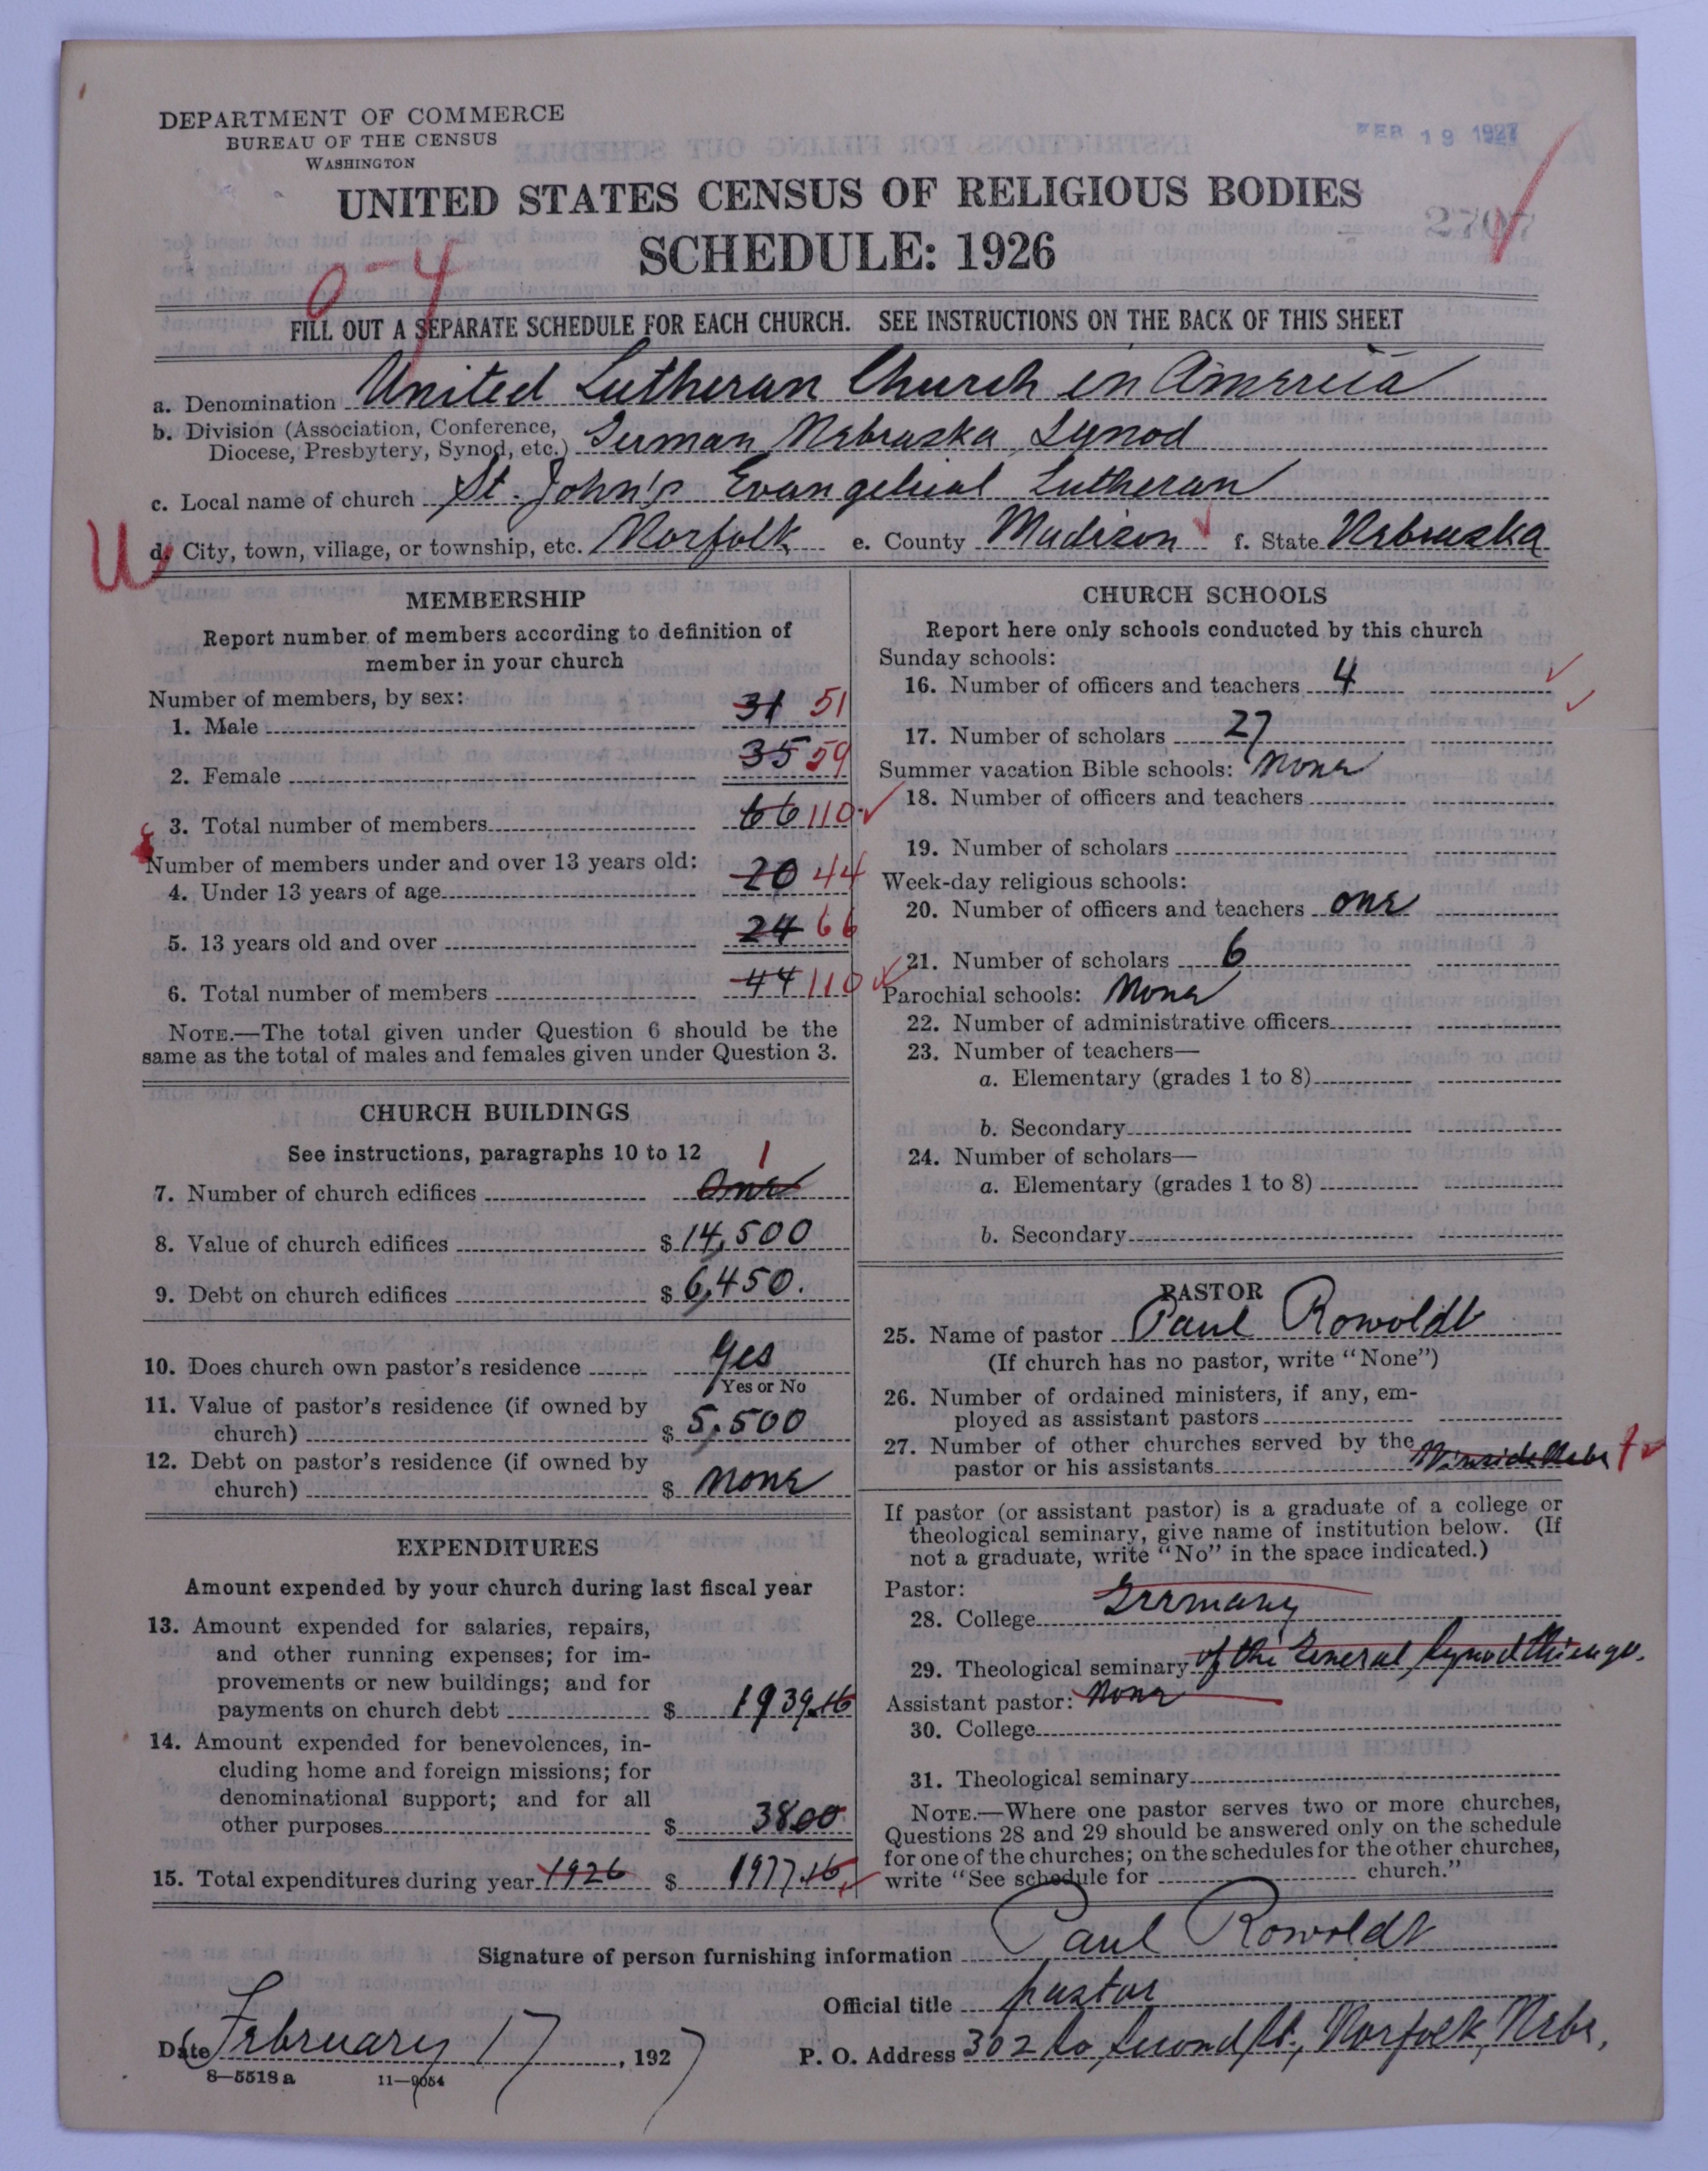 DEPARTMENT OF COMMERCE
BUREAU OF THE CENSUS
WASHINGTON
FEB 19 1927
UNITED STATES CENSUS OF RELIGIOUS BODIES
2707
SCHEDULE: 1926
0-4
FILL OUT A SEPARATE SCHEDULE FOR EACH CHURCH. SEE INSTRUCTIONS ON THE BACK OF THIS SHEET
a. Denomination United Lutheran Church in America
b. Division (Association, Conference, Diocese, Presbytery, Synod, etc.) German Nebraska Synod
c. Local name of church St. John's Evangelical Lutheran
U d. City, town, village, or township, etc. Norfolk e. County Madison f. State Nebraska
MEMBERSHIP
Report number of members according to definition of
member in your church
Number of members, by sex:
1. Male 31 51
2. Female 35 59
3. Total number of members 66 110
Number of members under and over 13 years old:
4. Under 13 years of age 20 44
5. 13 years old and over 24 66
6. Total number of members 44 110
NOTE.—The total given under Question 6 should be the
same as the total of males and females given under Question 3.
CHURCH BUILDINGS
See instructions, paragraphs 10 to 12
7. Number of church edifices One 1
8. Value of church edifices $ 14,500
9. Debt on church edifices $ 6,450.
10. Does church own pastor's residence Yes
Yes or No
11. Value of pastor's residence (if owned by
church) $ 5,500
12. Debt on pastor's residence (if owned by
church) $ none
EXPENDITURES
Amount expended by your church during last fiscal year
13. Amount expended for salaries, repairs,
and other running expenses; for im-
provements or new buildings; and for
payments on church debt $ 1939.16
14. Amount expended for benevolences, in-
cluding home and foreign missions; for
denominational support; and for all
other purposes $ 38.00
15. Total expenditures during year 1926 $ 1977.16
CHURCH SCHOOLS
Report here only schools conducted by this church
Sunday schools:
16. Number of officers and teachers 4
17. Number of scholars 27
Summer vacation Bible schools: None
18. Number of officers and teachers
19. Number of scholars
Week-day religious schools:
20. Number of officers and teachers one
21. Number of scholars 6
Parochial schools: None
22. Number of administrative officers
23. Number of teachers—
a. Elementary (grades 1 to 8)
b. Secondary
24. Number of scholars—
a. Elementary (grades 1 to 8)
b. Secondary
PASTOR
25. Name of pastor Paul Rowoldt
(If church has no pastor, write "None")
26. Number of ordained ministers, if any, em-
ployed as assistant pastors
27. Number of other churches served by the
pastor or his assistants Winside Nebr 1
If pastor (or assistant pastor) is a graduate of a college or
theological seminary, give name of institution below. (If
not a graduate, write "No" in the space indicated.)
Pastor:
28. College Germany
29. Theological seminary of the General Synod Chicago.
Assistant pastor: None
30. College
31. Theological seminary
NOTE.—Where one pastor serves two or more churches,
Questions 28 and 29 should be answered only on the schedule
for one of the churches; on the schedules for the other churches,
write "See schedule for church."
Signature of person furnishing information Paul Rowoldt
Official title pastor
Date February 17, 1927
P. O. Address 302 So Second St., Norfolk, Nebr.
8—5518 a 11—9054